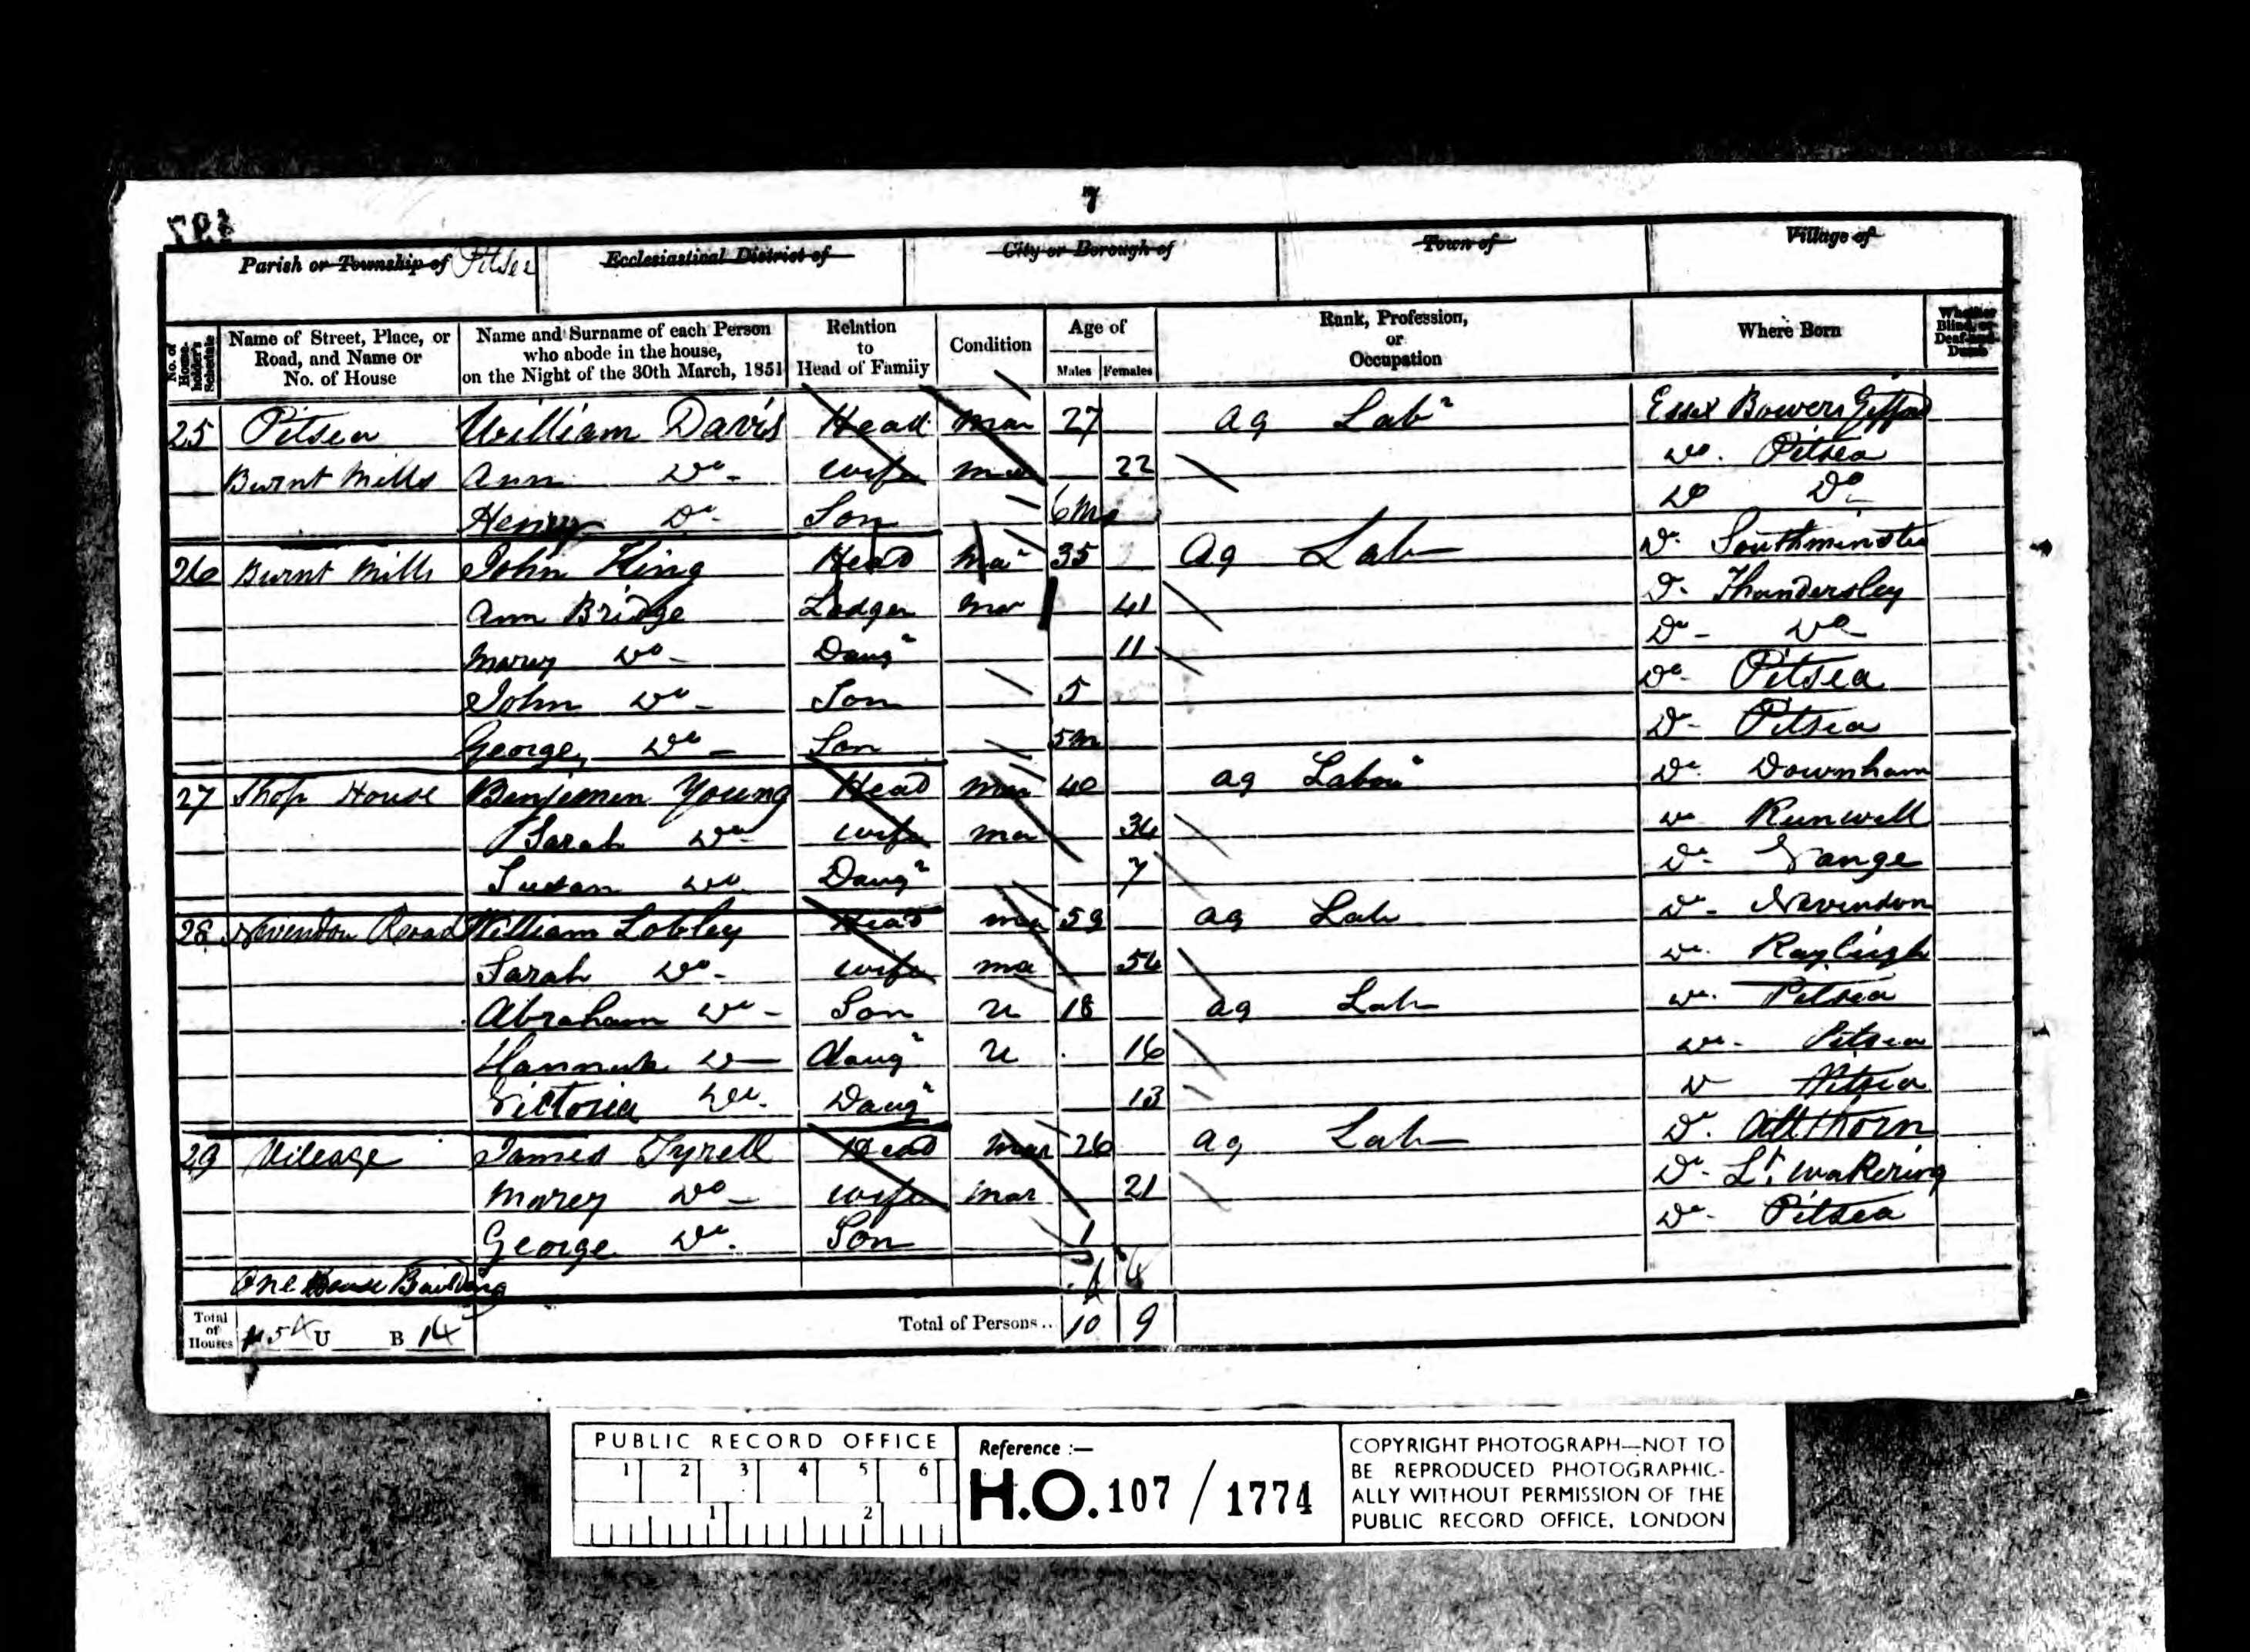 7
Parish or Township of Pitsea Ecclesiastical District of City or Borough of Town of Village of
No. of House-holder's Schedule Name of Street, Place, or Road, and Name or No. of House Name and Surname of each Person who abode in the house, on the Night of the 30th March, 1851 Relation to Head of Family Condition Age of Males Females Rank, Profession, or Occupation Where Born Whether Blind, or Deaf-and-Dumb
25 Pitsea William Davis Head Mar 27 Ag Labr Essex Bowers Gifford
Burnt Mills Ann Do - Wife Mar 22 Do. Pitsea
Henry Do - Son 6 Ms Do Do -
26 Burnt Mills John King Head Mar 35 Ag Lab Do Southminster
Ann Bridge Lodger Mar 41 Do Thundersley
Marey Do - Daugr 11 Do - Do
John Do - Son 5 Do - Pitsea
George, Do - Son 5m Do - Pitsea
27 Shop House Benjemen Young Head Mar 40 Ag Labour Do Downham
Sarah Do Wife Ma 36 Do Runwell
Susan Do Daugr 7 Do - Vange
28 Nevendon Road William Lobley Head Ma 59 Ag Lab Do - Nevendon
Sarah Do - Wife Ma 56 Do Rayleigh
Abraham Do - Son U 18 Ag Lab Do Pitsea
Hannah Do Daugr U 16 Do - Pitsea
Victoria Do Daugr 13 Do Pitsea
29 Vileage James Tyrell Head Mar 26 Ag Lab Do Altthorn
Marey Do - Wife Mar 21 Do - Lt. Wakering
George Do Son 1 Do - Pitsea
One House Building
Total of Houses U B Total of Persons .. 10 9
PUBLIC RECORD OFFICE
1 2 3 4 5 6
1 2
Reference :-
H.O. 107 / 1774
COPYRIGHT PHOTOGRAPH—NOT TO
BE REPRODUCED PHOTOGRAPHIC-
ALLY WITHOUT PERMISSION OF THE
PUBLIC RECORD OFFICE, LONDON